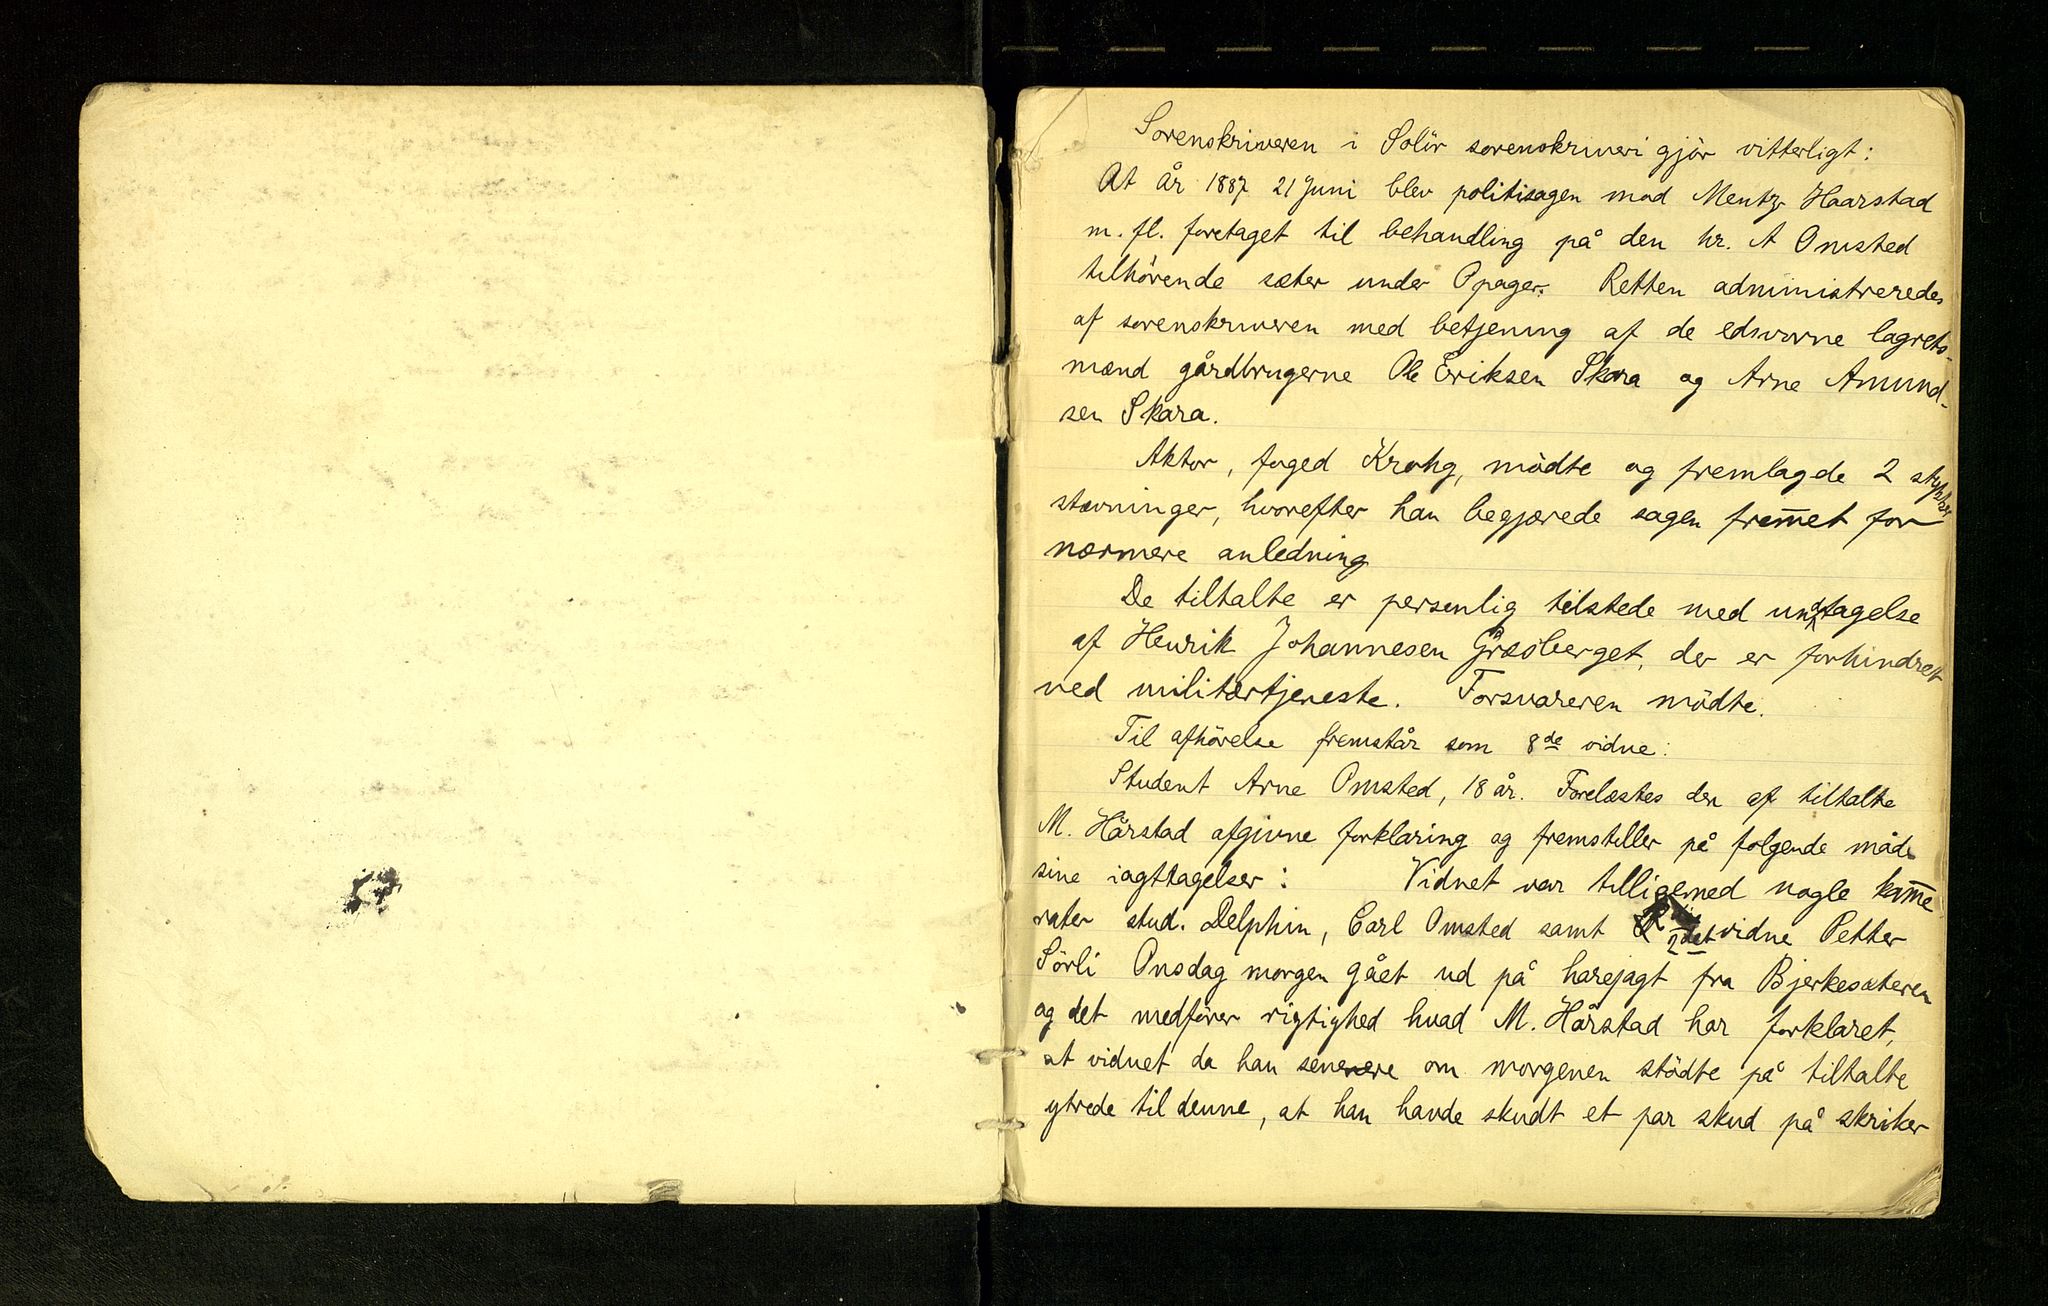 Sorenskriveren i Solör sorenskriveri gjör vitterligt:
At År 1887 21 Juni blev politisagen mod Mentz Haarstad
m. fl. foretaget til behandling på den hr. A Omsted
tilhörende sæter under Opager. Retten administreredes
af sorenskriveren med betjening af de edsvorne lagrets-
mænd gårdbrugerne Ole Eriksen Skara og Arne Amund-
sen Skara.
Aktor, foged Krohg, mödte og fremlagde 2 stykker
stævninger, hvorefter han begjærede sagen frem̅et for
nærmere anledning
De tiltalte er personlig tilstede med undtagelse
af Henrik Johannesen Græsberget, der er forhindret
ved militærtjeneste. Forsvareren mödte.
Til afhörelse fremstår som 8de vidne:
Student Arne Omsted, 18 år. Forelæstes den af tiltalte
M. Hårstad afgivne forklaring og fremstiller på folgende måde
sine iagttagelser: Vidnet var tilligemed nogle kam̅e
rater stud. Delphin, Carl Omsted samt 2det vidne Petter
Sörli Onsdag morgen gået ud på harejagt fra Bjerkesæteren
og det medförer rigtighed hvad M. Hårstad har forklaret,
at vidnet da han senere om morgenen stödte på tiltalte
ytrede til denne, at han havde skudt et par skud på skriker